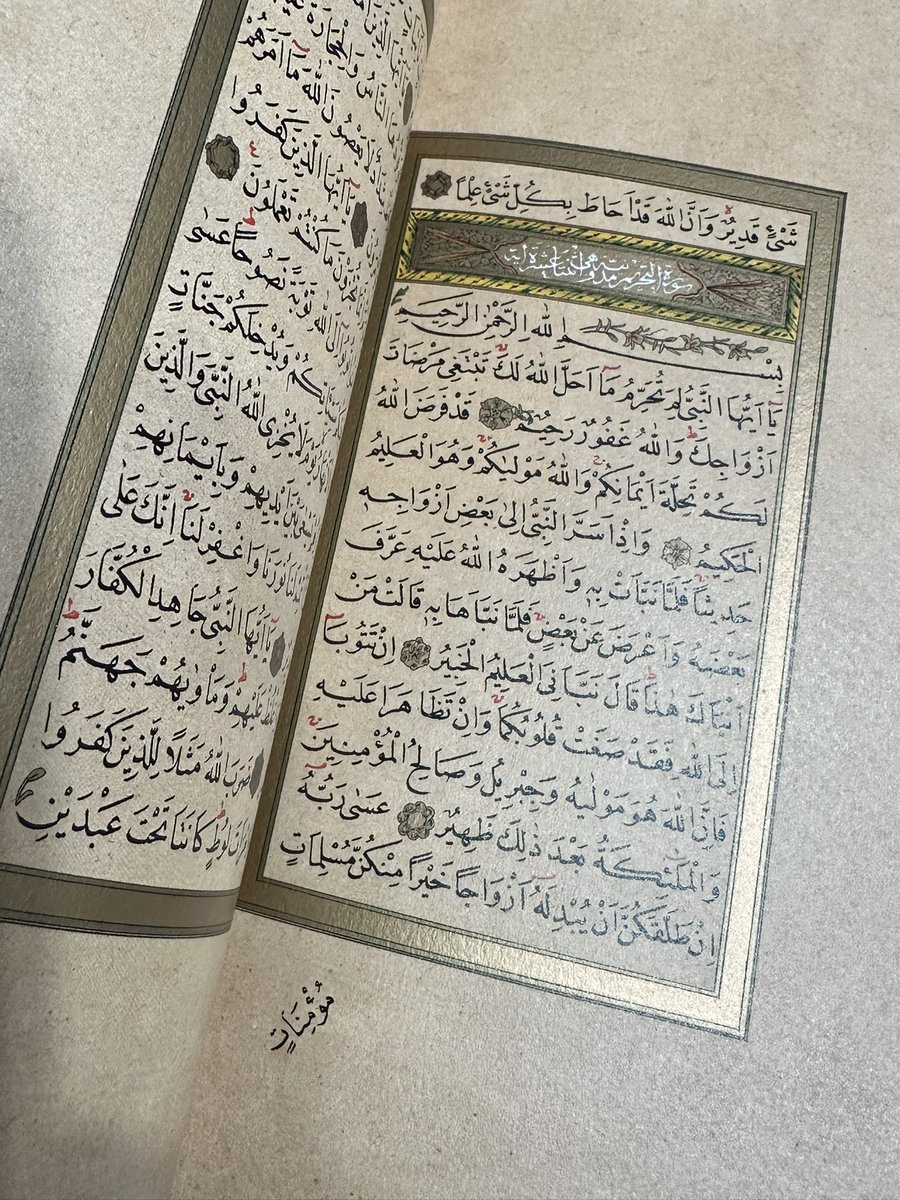 شَیْءٍ قَدِيرٌ وَاَنَّ اللّٰهَ قَدْ اَحَاطَ بِكُلِّ شَیْءٍ عِلْمًا
سورة التحريم مدنية وهى اثنتا عشرة اية
بِسْمِ اللّٰهِ الرَّحْمٰنِ الرَّحِيمِ
يَٓا اَيُّهَا النَّبِىُّ لِمَ تُحَرِّمُ مَٓا اَحَلَّ اللّٰهُ لَكَ تَبْتَغِى مَرْضَاتَ
اَزْوَاجِكَ وَاللّٰهُ غَفُورٌ رَحِيمٌ قَدْ فَرَضَ اللّٰهُ
لَكُمْ تَحِلَّةَ اَيْمَانِكُمْ وَاللّٰهُ مَوْلٰيكُمْ وَهُوَ الْعَلِيمُ
الْحَكِيمُ وَاِذْ اَسَرَّ النَّبِىُّ اِلٰى بَعْضِ اَزْوَاجِهٖ
حَدِيثًا فَلَمَّا نَبَّاَتْ بِهٖ وَاَظْهَرَهُ اللّٰهُ عَلَيْهِ عَرَّفَ
بَعْضَهُ وَاَعْرَضَ عَنْ بَعْضٍ فَلَمَّا نَبَّاَهَا بِهٖ قَالَتْ مَنْ
اَنْبَاَكَ هٰذَا قَالَ نَبَّاَنِىَ الْعَلِيمُ الْخَبِيرُ اِنْ تَتُوبَٓا
اِلَى اللّٰهِ فَقَدْ صَغَتْ قُلُوبُكُمَا وَاِنْ تَظَاهَرَا عَلَيْهِ
فَاِنَّ اللّٰهَ هُوَ مَوْلٰيهُ وَجِبْرِيلُ وَصَالِحُ الْمُؤْمِنِينَ
وَالْمَلٰٓئِكَةُ بَعْدَ ذٰلِكَ ظَهِيرٌ عَسٰى رَبُّهُٓ
اِنْ طَلَّقَكُنَّ اَنْ يُبْدِلَهُٓ اَزْوَاجًا خَيْرًا مِنْكُنَّ مُسْلِمَاتٍ
مُؤْمِنَاتٍ
النَّاسُ وَالْحِجَارَةُ
يَعْصُونَ اللّٰهَ مَٓا اَمَرَهُمْ
يَٓا اَيُّهَا الَّذِينَ كَفَرُوا
مَا كُنْتُمْ تَعْمَلُونَ
اِلَى اللّٰهِ تَوْبَةً نَصُوحًا عَسٰى
وَيُدْخِلَكُمْ جَنَّاتٍ
لَا يُخْزِى اللّٰهُ النَّبِىَّ وَالَّذِينَ
اَيْدِيهِمْ وَبِاَيْمَانِهِمْ
لَنَا نُورَنَا وَاغْفِرْ لَنَا اِنَّكَ عَلٰى
يَٓا اَيُّهَا النَّبِىُّ جَاهِدِ الْكُفَّارَ
عَلَيْهِمْ وَمَاْوٰيهُمْ جَهَنَّمُ
ضَرَبَ اللّٰهُ مَثَلًا لِلَّذِينَ كَفَرُوا
لُوطٍ كَانَتَا تَحْتَ عَبْدَيْنِ